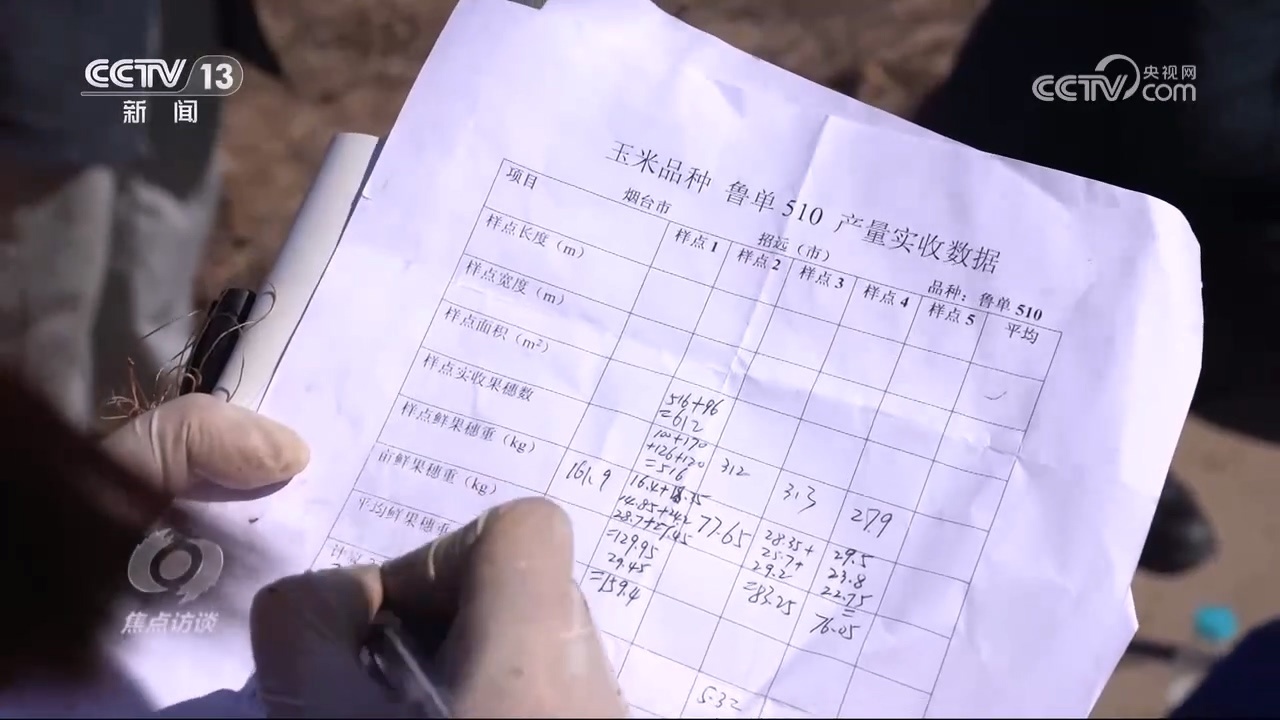 CCTV 13
新闻
央视网
CCTV.com
玉米品种 鲁单 510 产量实收数据
烟台市 招远（市） 品种：鲁单 510
项目 样点 1 样点 2 样点 3 样点 4 样点 5 平均
样点长度（m）
样点宽度（m）
样点面积（m²）
样点实收果穗数 516+96 =612 100+170 +126+120 =516 312 313 279
样点鲜果穗重（kg） 161.9 16.4+18.75 14.85+24.2 28.7+27.45 =129.95 29.45 =159.4 77.65 28.35+ 25.7+ 29.2 =83.25 29.5 23.8 22.75 = 76.05
亩鲜果穗重（kg）
平均鲜果穗重
5.32
焦点访谈